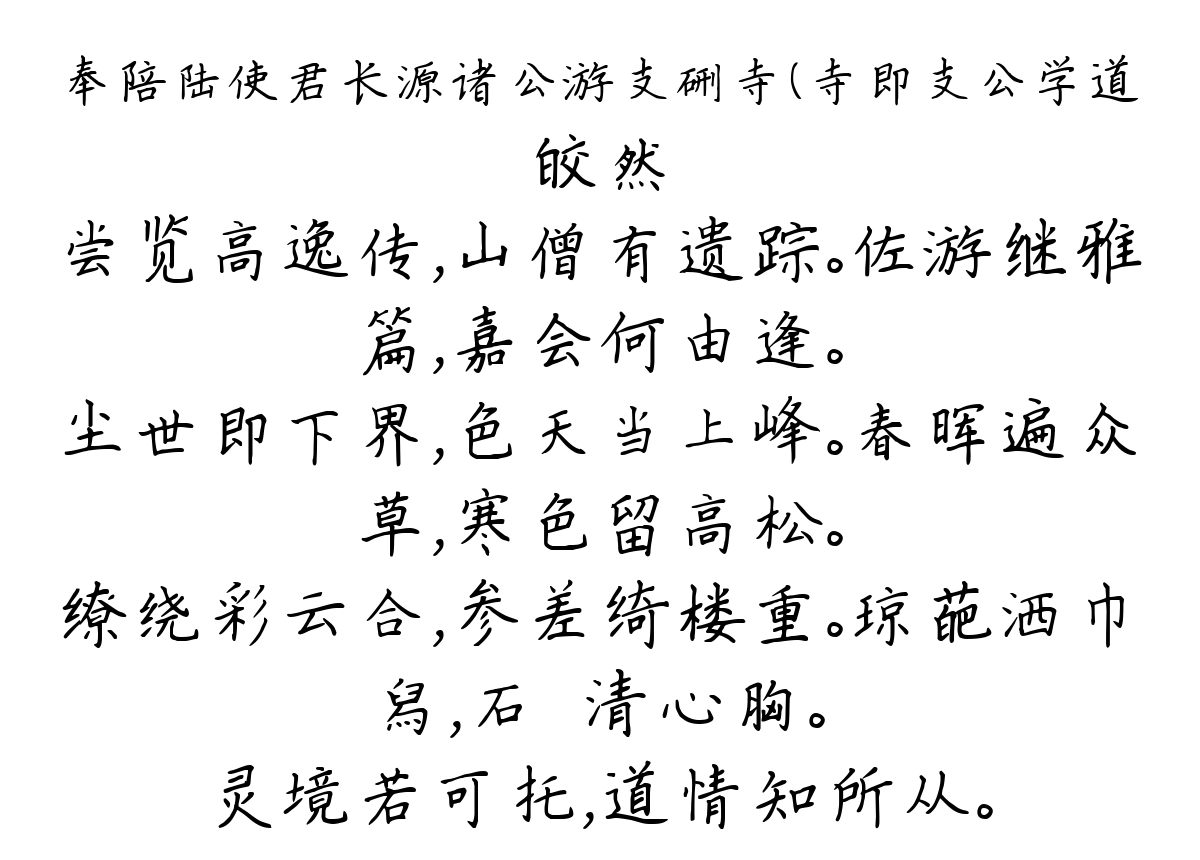 奉陪陆使君长源诸公游支硎寺(寺即支公学道
皎然
尝览高逸传,山僧有遗踪。佐游继雅
篇,嘉会何由逢。
尘世即下界,色天当上峰。春晖遍众
草,寒色留高松。
缭绕彩云合,参差绮楼重。琼葩洒巾
舄,石 清心胸。
灵境若可托,道情知所从。